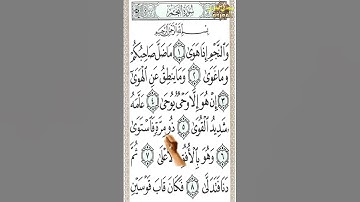 سُورَةُ النَّجْمِ
بِسْمِ اللَّهِ الرَّحْمَٰنِ الرَّحِيمِ
وَالنَّجْمِ إِذَا هَوَىٰ ۝١ مَا ضَلَّ صَاحِبُكُمْ
وَمَا غَوَىٰ ۝٢ وَمَا يَنطِقُ عَنِ الْهَوَىٰ
۝٣ إِنْ هُوَ إِلَّا وَحْيٌ يُوحَىٰ ۝٤ عَلَّمَهُ
شَدِيدُ الْقُوَىٰ ۝٥ ذُو مِرَّةٍ فَاسْتَوَىٰ
۝٦ وَهُوَ بِالْأُفُقِ الْأَعْلَىٰ ۝٧ ثُمَّ
دَنَا فَتَدَلَّىٰ ۝٨ فَكَانَ قَابَ قَوْسَيْنِ